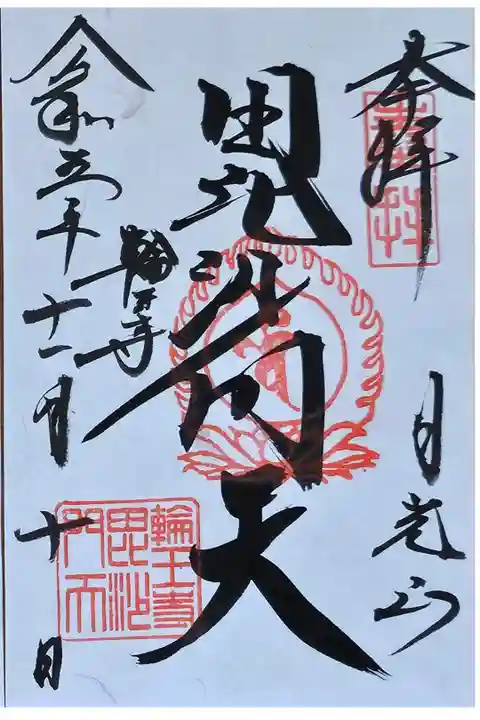 奉拝
奉拝
日光山
毘沙門天
輪王寺
輪王寺
毘沙
門天
令和五年十一月十日